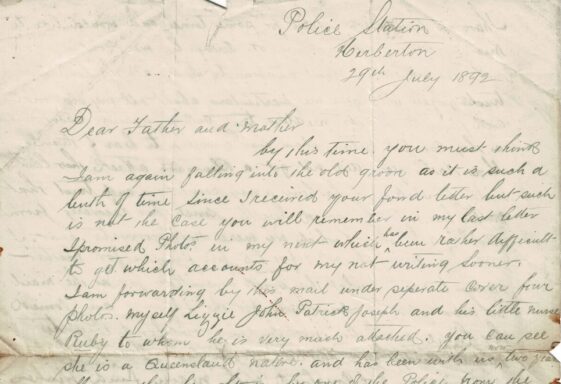 Police Station
Herberton
29th July 1892
Dear Father and Mother
by this time you must think
I am again falling into the old groon as it is such a
lenth of time since I received your fond letter but such
is not the case you will remember in my last letter
I promised Photos in my next which has been rather difficult
to get which accounts for my not writing sooner.
I am forwarding by this mail under seperate cover four
photos. myself Lizzie John Patrick Joseph and his little nurse
Ruby to whom he is very much attached. you can see
she is a Queensland native. and has been with us now two years
the Police from the